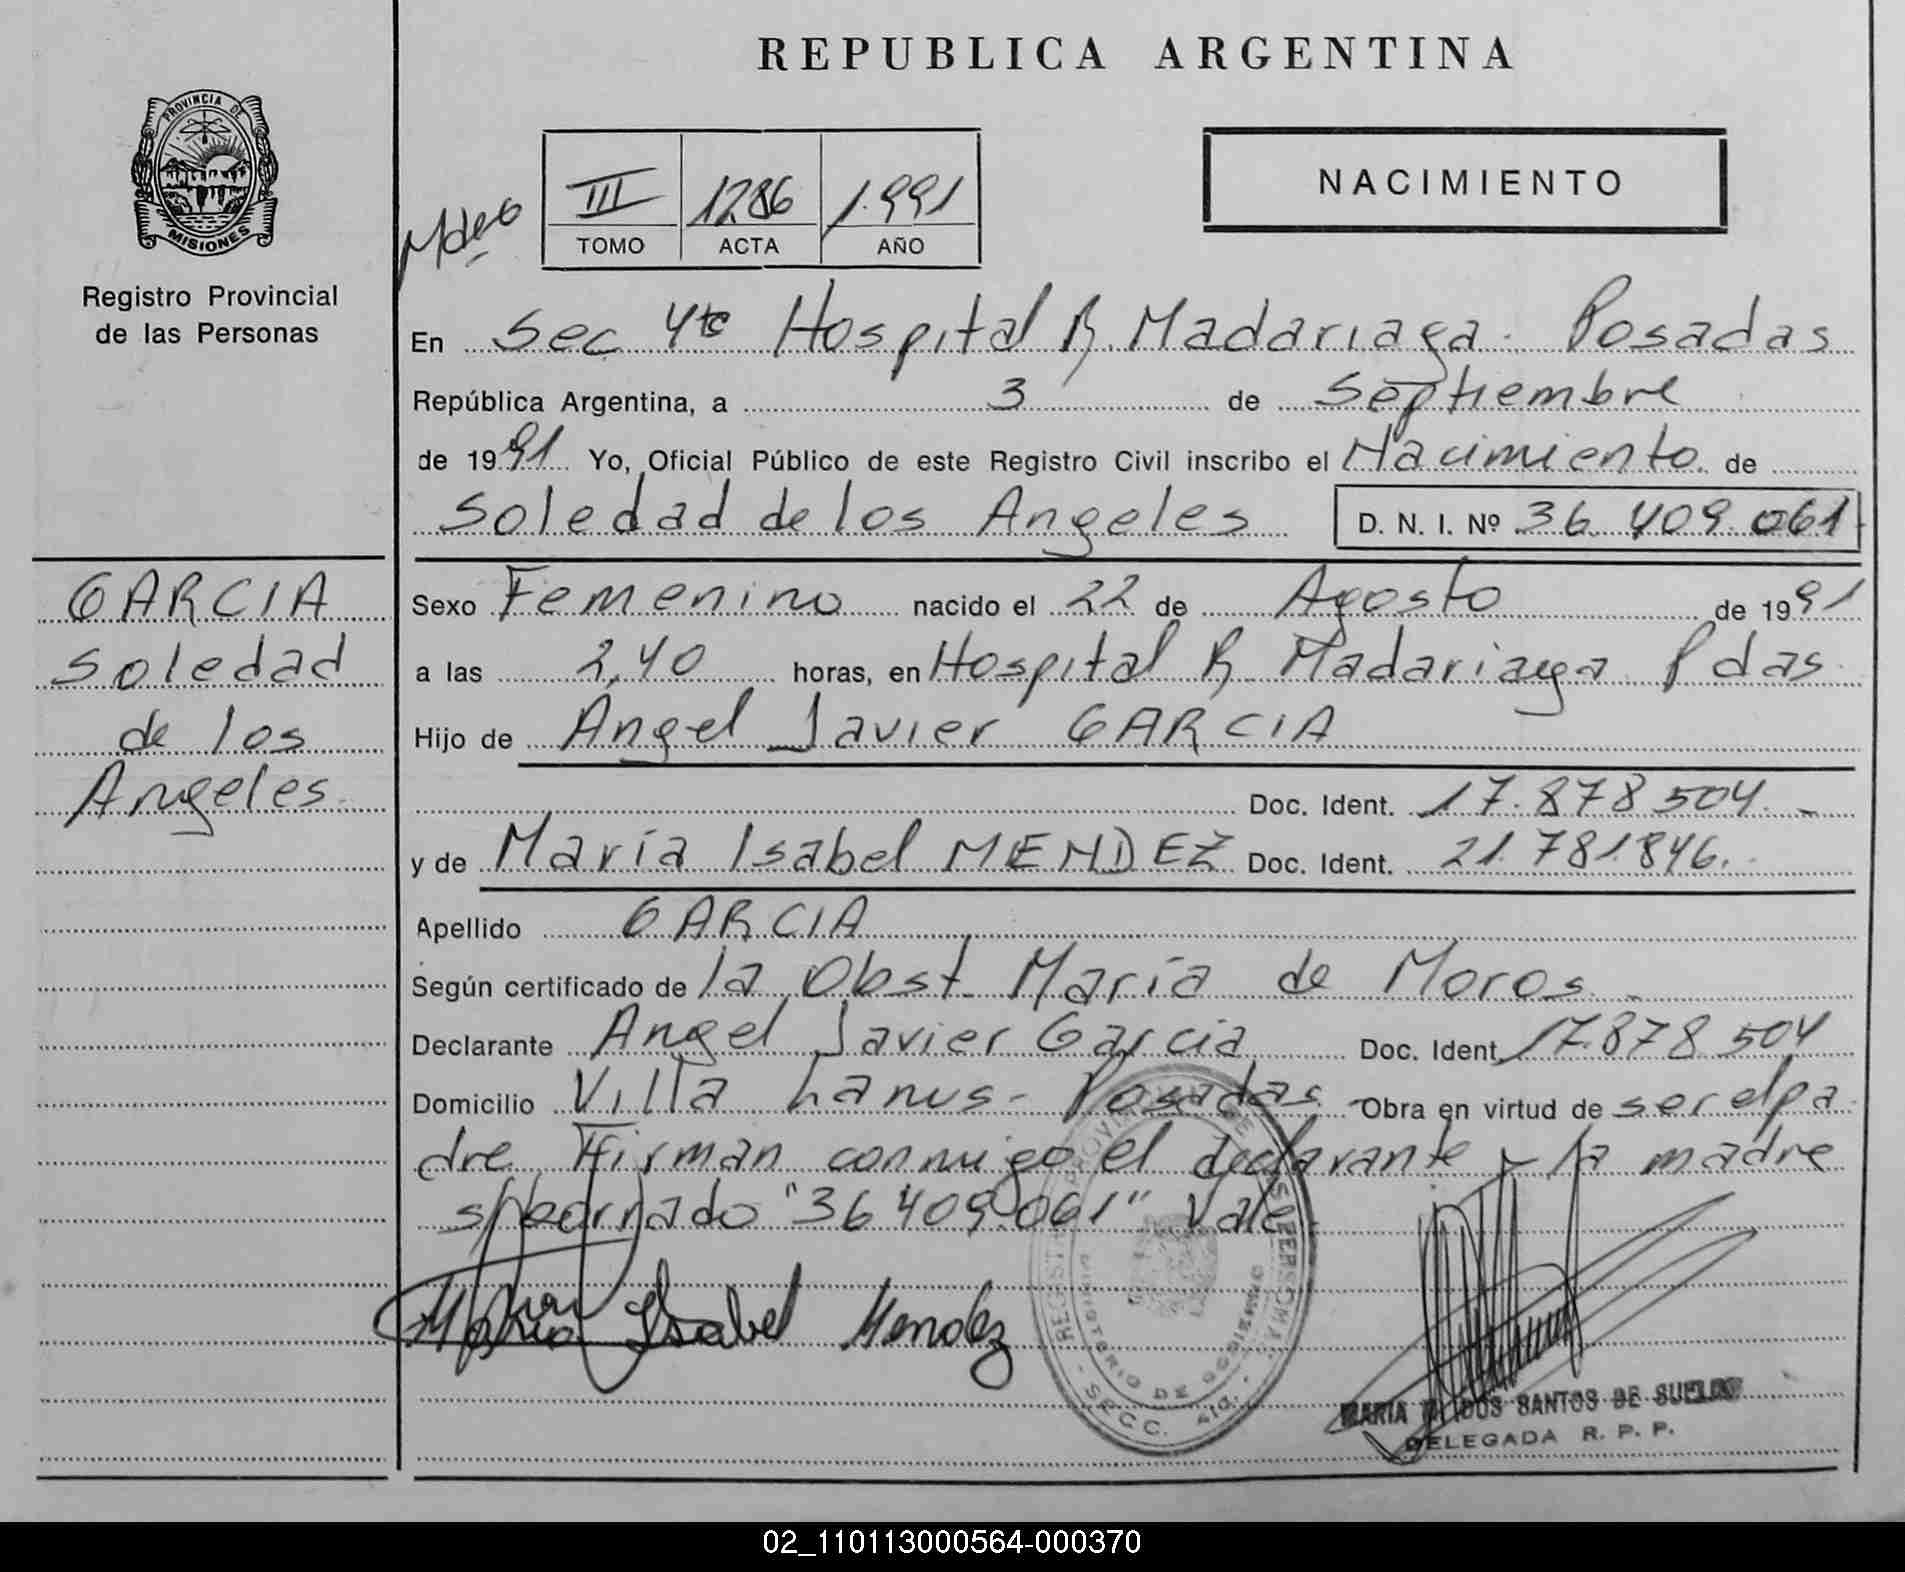 REPUBLICA ARGENTINA
PROVINCIA DE
MISIONES
Registro Provincial
de las Personas
III 1286 1.991
TOMO ACTA AÑO
NACIMIENTO
En Sec 4ta Hospital R. Madariaga. Posadas
República Argentina, a 3 de Septiembre
de 1991 Yo, Oficial Público de este Registro Civil inscribo el Nacimiento de
Soledad de los Angeles D. N. I. Nº 36.409.061
GARCIA
Soledad
de los
Angeles
Sexo Femenino nacido el 22 de Agosto de 1991
a las 2,40 horas, en Hospital R. Madariaga Pdas
Hijo de Angel Javier GARCIA
Doc. Ident. 17.878.504.-
y de María Isabel MENDEZ Doc. Ident. 21.781.846.
Apellido GARCIA
Según certificado de la Obst. María de Moros
Declarante Angel Javier Garcia Doc. Ident. 17.878.504
Domicilio Villa Lanus - Posadas - Obra en virtud de ser el pa
dre. Firman conmigo el declarante y la madre
s/borrado "36.409.061" Vale.
Maria Isabel Mendez
MARIA DOS SANTOS DE
DELEGADA R. P. P.
02_110113000564-000370